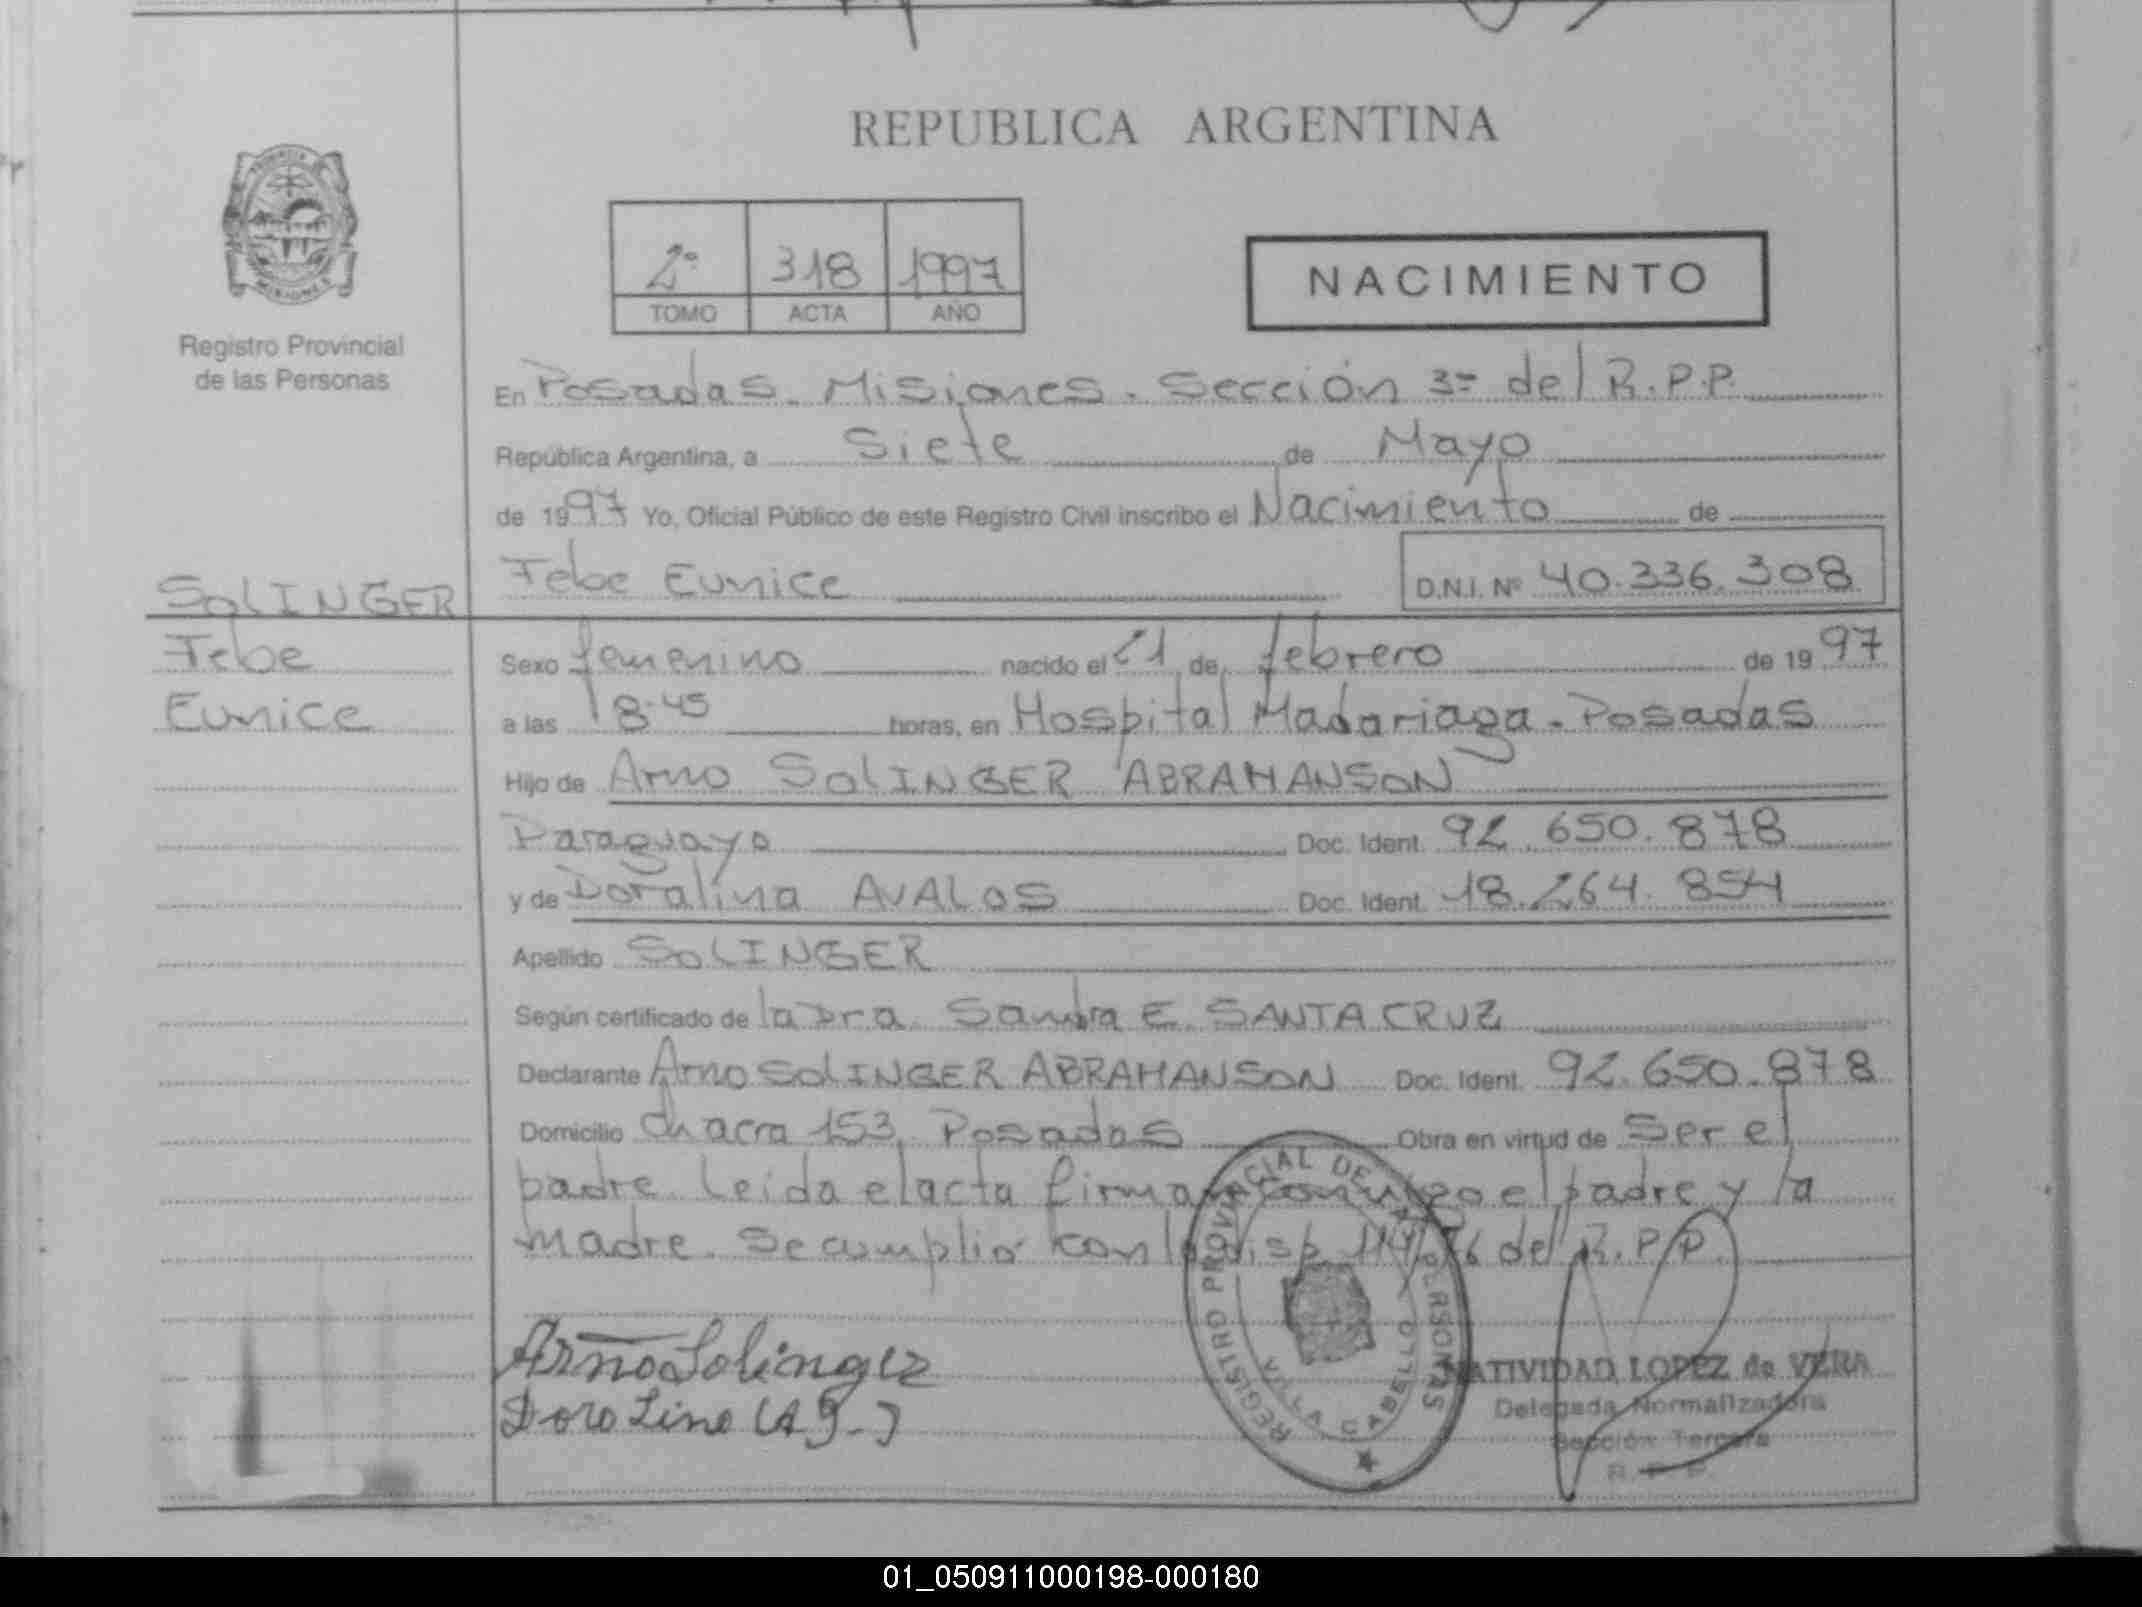 REPUBLICA ARGENTINA
2º 318 1997
TOMO ACTA AÑO
NACIMIENTO
PROVINCIA
MISIONES
Registro Provincial
de las Personas
En Posadas. Misiones. Sección 3= del R.P.P.
República Argentina, a Siete de Mayo
de 1997 Yo, Oficial Público de este Registro Civil inscribo el Nacimiento de
Febe Eunice D.N.I. Nº 40.336.308
SOLINGER
Febe
Eunice
Sexo femenino nacido el 21 de febrero de 1997
a las 18.45 horas, en Hospital Madariaga - Posadas
Hijo de Arno SOLINGER ABRAHANSON
Paraguayo Doc. Ident. 92.650.878
y de Doralina AVALOS Doc. Ident. 18.264.854
Apellido SOLINGER
Según certificado de la Dra Sandra E. SANTA CRUZ
Declarante Arno SOLINGER ABRAHANSON Doc. Ident. 92.650.878
Domicilio Chacra 153, Posadas Obra en virtud de Ser el
padre. Leida el acta firman conmigo el padre y la
madre. Se cumplió con la disp. 114/76 del R.P.P.
Arno Solinger
Doro Lina
REGISTRO PROVINCIAL DE LAS PERSONAS
VILLA CABELLO
NATIVIDAD LOPEZ de VERA
Delegada Normalizadora
Sección Tercera
R.P.P.
01_050911000198-000180